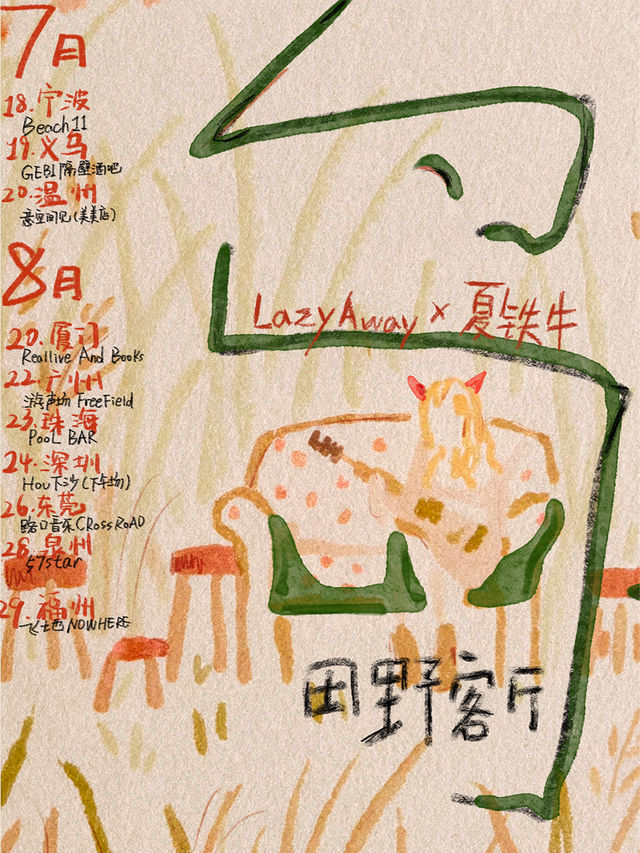 7月
18.宁波
Beach11
19.义乌
GEBI隔壁酒吧
20.温州
意里间见(美美店)
8月
20.厦门
Reallive And Books
22.广州
游声场 FreeField
23.珠海
Pool BAR
24.深圳
Hou下沙(下午场)
26.东莞
路口音乐CRossRoAD
28.泉州
57star
29.福州
飞地 NOWHERE
LazyAway × 夏铁牛
田野客厅